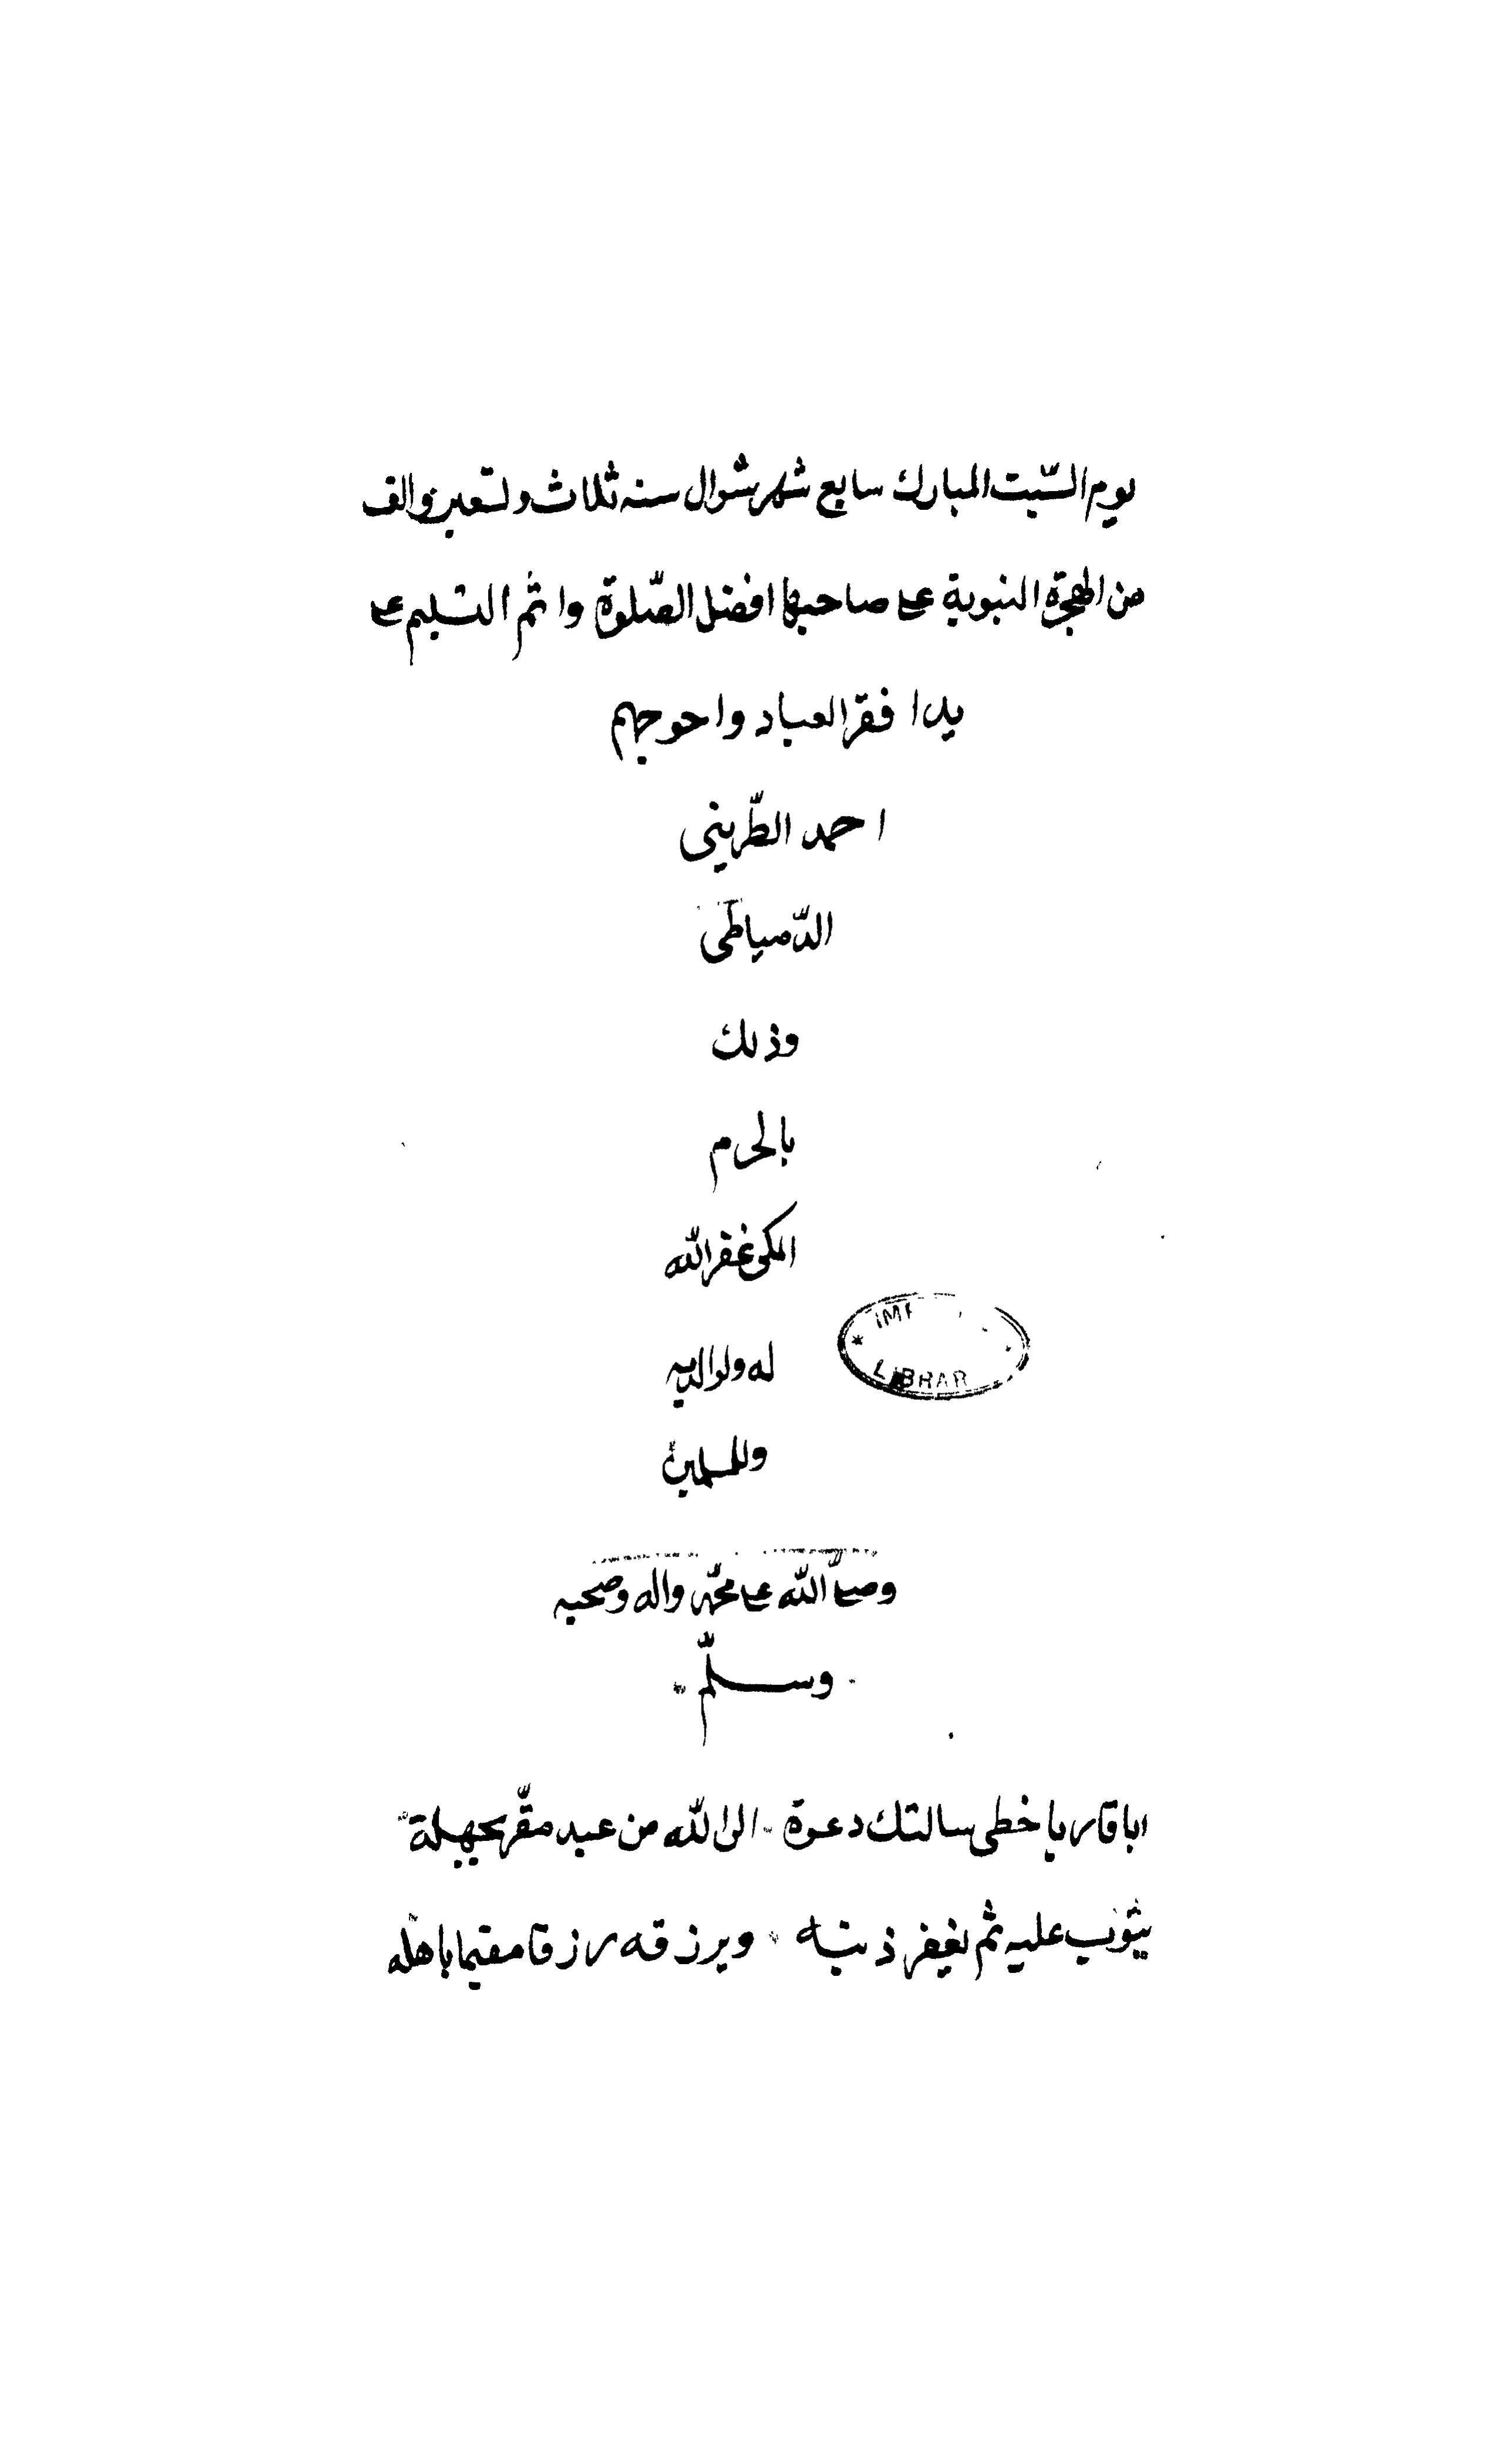 يوم السّبت المبارك سابع شهر شوال سنه ثلاث وتسعين والف
من الهجرة النبوية على صاحبها افضل الصّلوة واتم التسليم على
يد افقر العباد واحوجهم
احمد الطّرينى
الدّمياطى
وذلك
بالحرم
المكى غفر الله
له ولوالديه
وللمسلمين
وصلّى الله على محمّد واله وصحبه
وسلّم
IMP
LIBRAR
ايا قاريا خطى سالتك دعوة الى الله من عبد مقرّ بجهله
يتوب عليه ثم يغفر ذنبه ويرزقه رزقا مقيما باهله